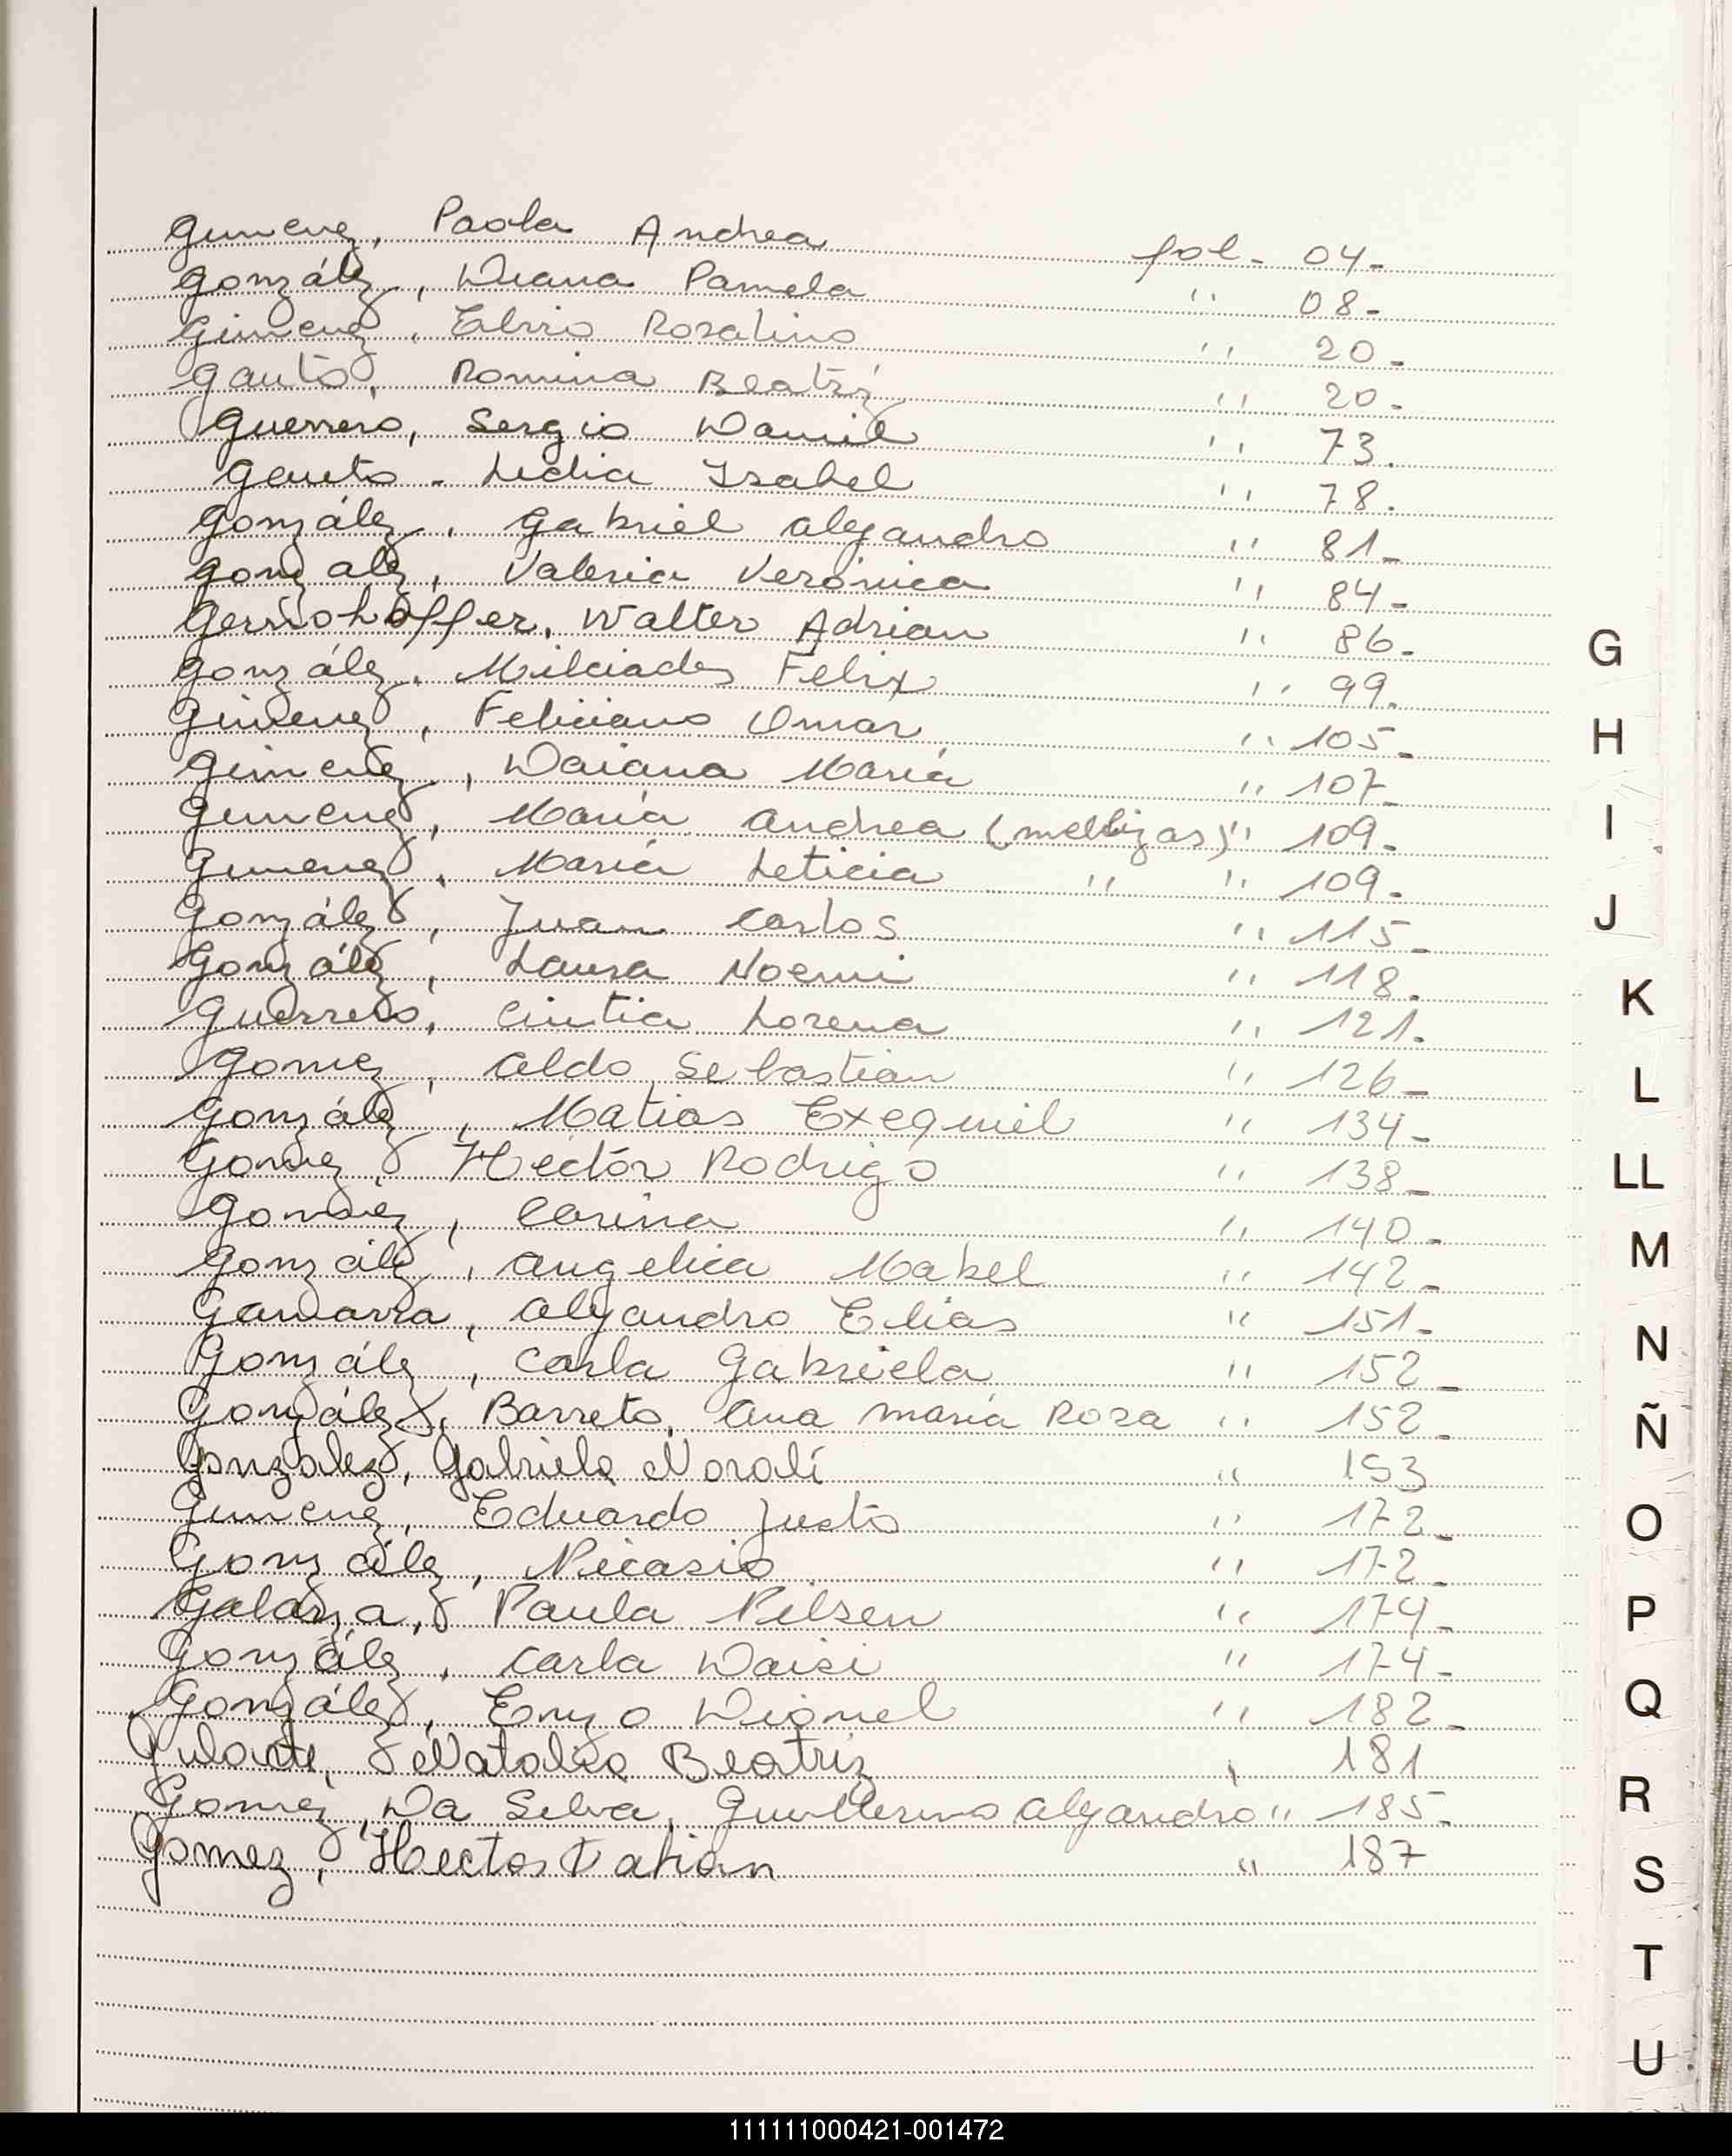 Gimenez, Paola Andrea fol - 04 -
González, Diana Pamela " 08 -
Gimenez, Elvio Rosalino " 20 -
Gauto, Romina Beatriz " 20 -
Guerrero, Sergio Daniel " 73.
Gauto - Lidia Isabel " 78.
González, Gabriel Alejandro " 81 -
Gonzalez, Valeria Verónica " 84 -
Walter Adrian " 86 -
González, Milciades Felix " 99.
Gimenez, Feliciano Omar " 105 -
Gimenez, Daiana María " 107 -
Gimenez, María Andrea (mellizas) " 109 -
Gimenez, María Leticia " " 109 -
González, Juan Carlos " 115 -
González, Laura Noemi " 118.
Guerrero, Cintia Lorena " 121.
Gomez, Aldo Sebastián " 126 -
González, Matias Exequiel " 134 -
Gomez, Hector Rodrigo " 138 -
Gomez, Carina " 140 -
González, Angelica Mabel " 142 -
Gamarra, Alejandro Elias " 151 -
González, Carla Gabriela " 152 -
González, Barreto, Ana María Rosa " 152 -
Gonzalez, Gabriela Noralí " 153
Gimenez, Eduardo Justo " 172 -
González, Nicasio " 172 -
Galarza, Paula Nilsen " 174 -
González, Carla Daisi " 174 -
González, Enzo Dionel " 182 -
Natalia Beatriz " 181
Gomez Da Silva, Guillermo Alejandro " 185 -
Gomez, Hector Fabian " 187
G
H
I
J
K
L
LL
M
N
Ñ
O
P
Q
R
S
T
U
111111000421-001472